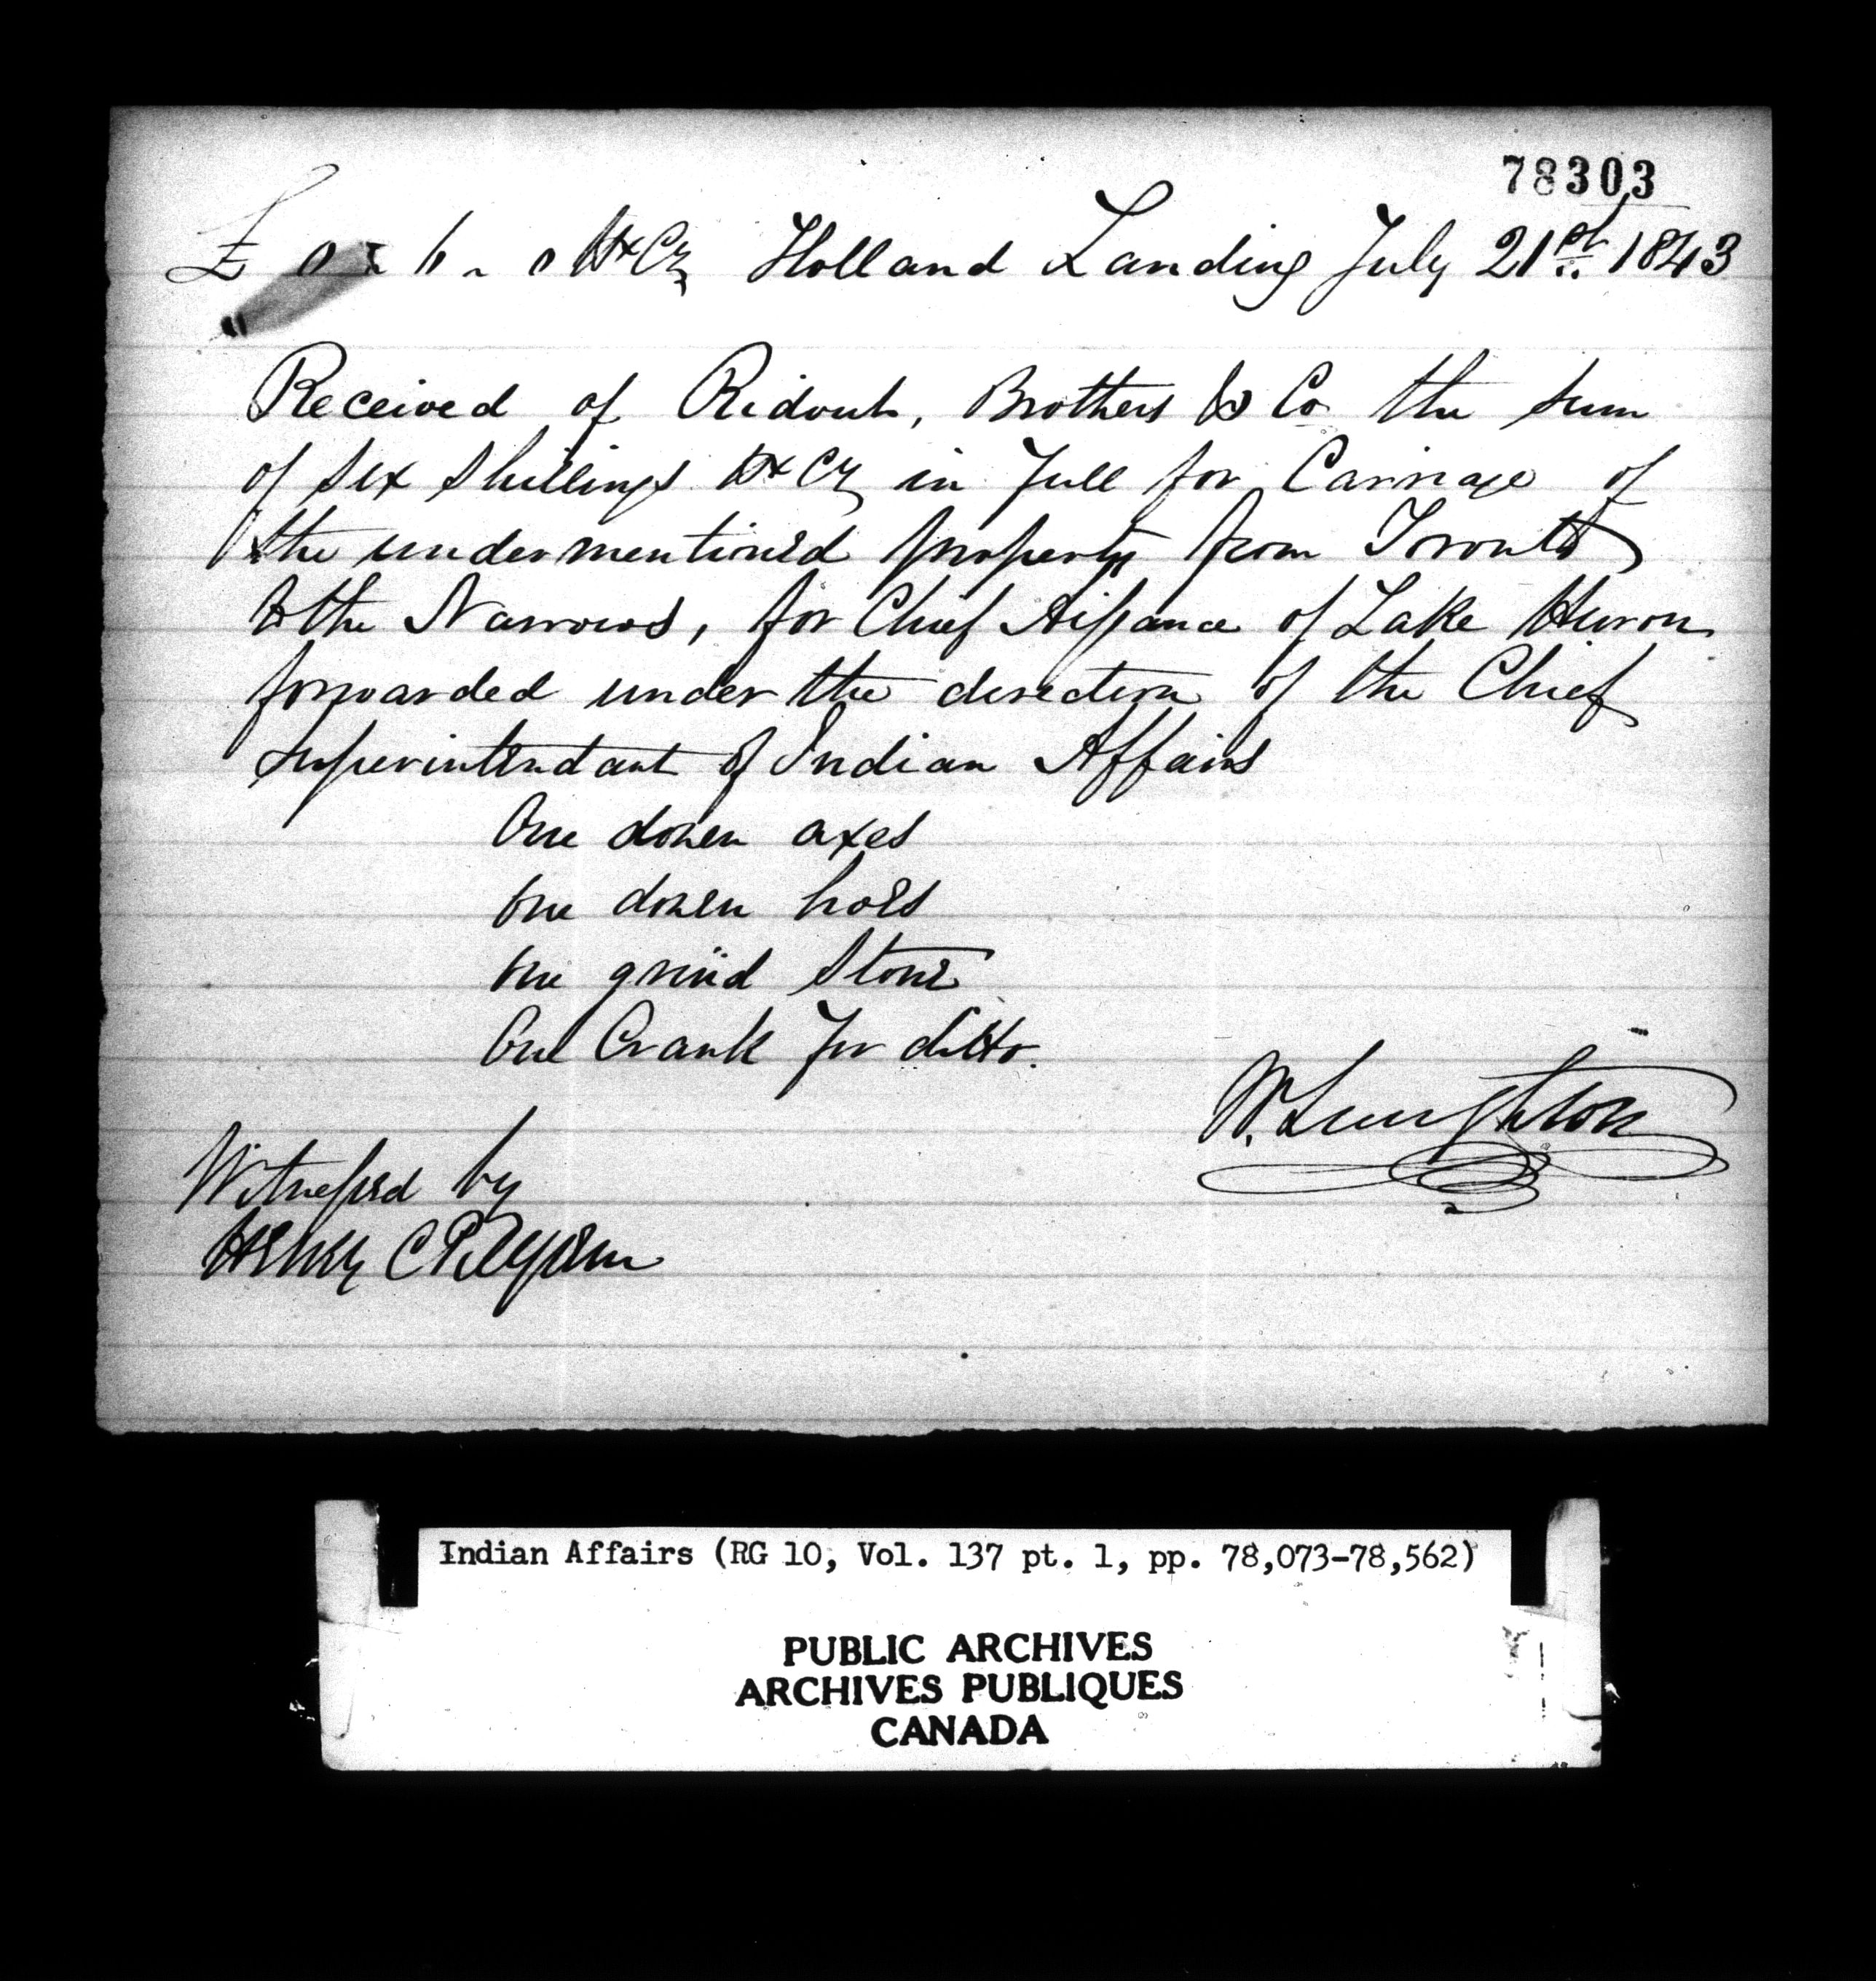 78303
£ 0 : 6 - 0 Hx Cy Holland Landing July 21st 1843
Received of Ridout, Brothers & Co the sum
of six shillings Hx Cy in full for Carriage of
the undermentioned property from Toronto
to the Narrows, for Chief Aissance of Lake Huron
forwarded under the direction of the Chief
superintendant of Indian Affairs
One dozen axes
One dozen hoes
One grind Stone
One Crank for ditto.
W. Laughton
Witnessed by
Henry C
Indian Affairs (RG 10, Vol. 137 pt. 1, pp. 78,073-78,562)
PUBLIC ARCHIVES
ARCHIVES PUBLIQUES
CANADA